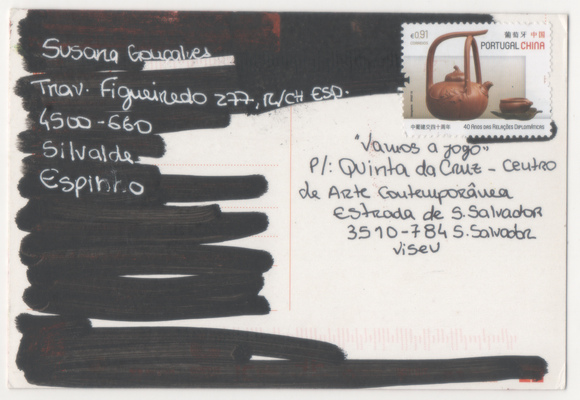 Susana Gonçalves
Trav. Figueiredo 277, R/CH ESP.
4500-660
Silvalde
Espinho
€0,91
CORREIOS
葡萄牙 中国
PORTUGAL CHINA
中葡建交四十周年
40 Anos das Relações Diplomáticas
"Vamos a jogo"
P/: Quinta da Cruz - Centro
de Arte Contemporânea
Estrada de S. Salvador
3510-784 S. Salvador
Viseu